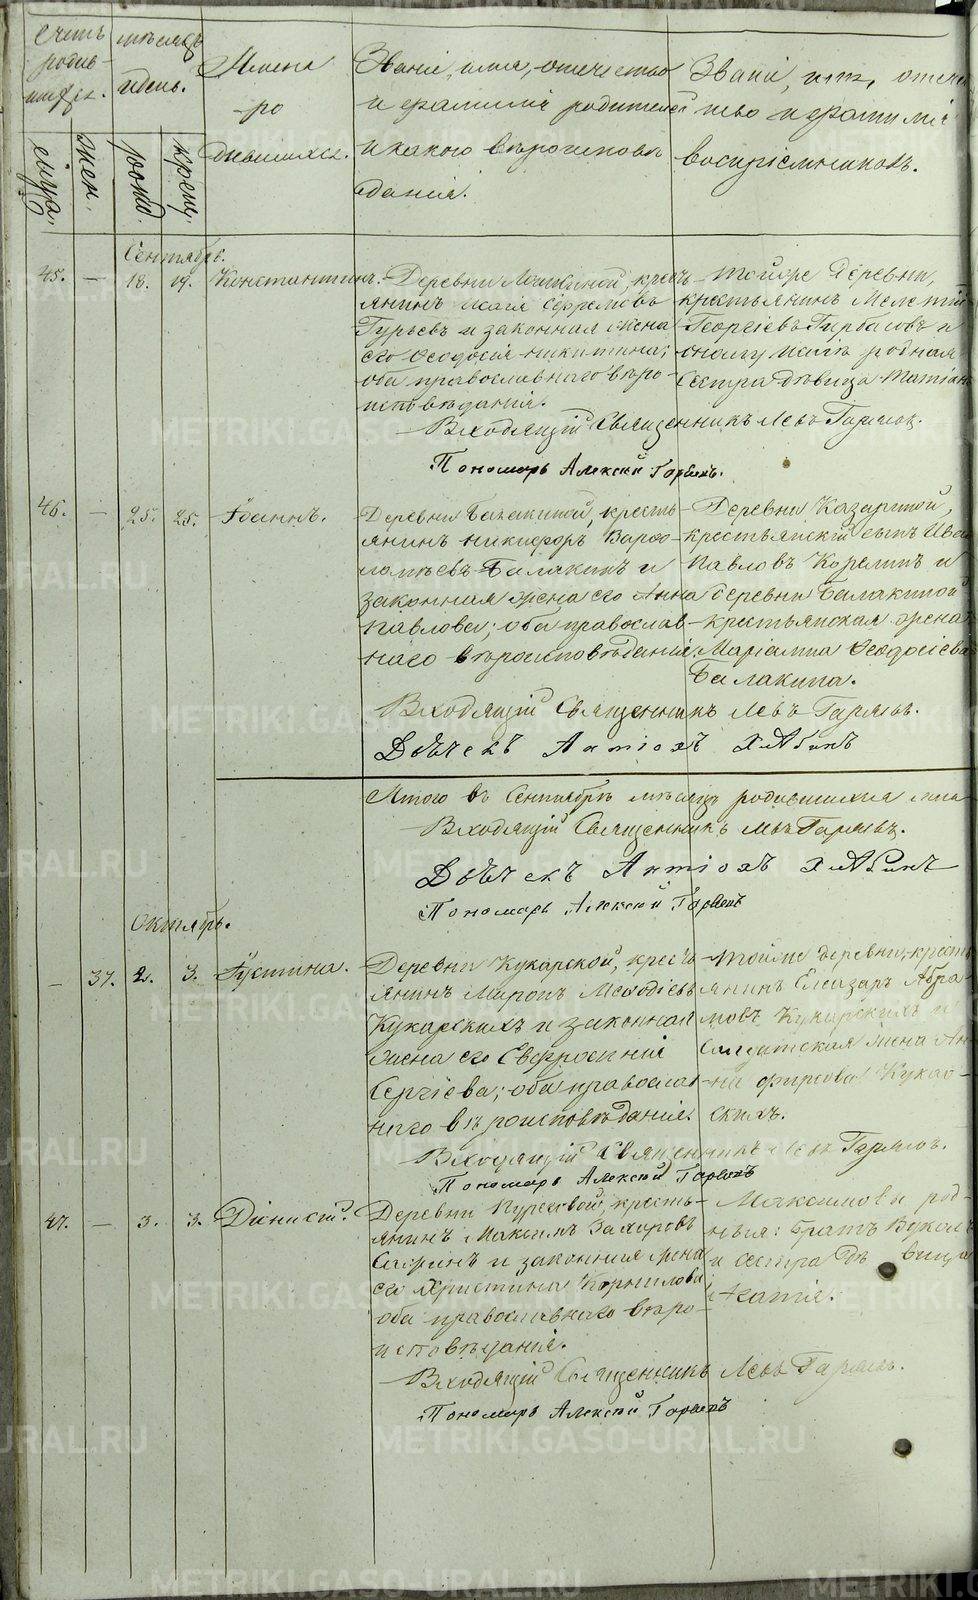 Счетъ родив-шихся.
Мѣсяцъ и день.
Имена ро дившихся.
Званіе, имя, отчество и фамилія родителей и какого вѣроисповѣданія.
Званіе, имя, отчество и фамилія воспріемниковъ.
муж.
жен.
рожд.
крещ.
Сентябрь.
45. — 18. 19. Константинъ.
Деревни крестьянинъ Исаія Ефремовъ
Гурьевъ и законная жена
его Ѳеодосія Никитина;
оба православнаго вѣро-
исповѣданія.
Тойже деревни,
крестьянинъ Мелетій
Георгіевъ и
оному Исаіи родная
сестра дѣвица
Входящій Священникъ Левъ
Пономарь Алексѣй
46. — 25. 25. Іоаннъ.
Деревни Балакиной, кресть-
янинъ Никифоръ Варѳо-
ломѣевъ Балакинъ и
законная жена его Анна
Павлова; оба православ-
наго вѣроисповѣданія.
Деревни Казариной,
крестьянскій сынъ Иванъ
Павловъ Корелинъ и
деревни Балакиной
крестьянская жена
Маріамна Ѳеодосіева
Балакина.
Входящій Священникъ Левъ
Дьячекъ Антіохъ Хлабинъ
Итого въ Сентябрѣ мѣсяцѣ родившихся
Входящій Священникъ Левъ
Дьячекъ Антіохъ Хлабинъ
Пономарь Алексѣй
Октябрь.
— 37. 2. 3. Іустина.
Деревни Кукарской, кресть-
янинъ Миронъ Меѳодіевъ
Кукарскихъ и законная
жена его Евфросинія
Сергіева; оба православ-
наго вѣроисповѣданія.
Тойже деревни, кресть-
янинъ Елеазаръ Абра-
мовъ Кукарскихъ и
солдатская жена Ан-
на Фирсова Кукар-
скихъ.
Входящій Священникъ Левъ
Пономарь Алексѣй
47. — 3. 3. Діонисій.
Деревни кресть-
янинъ Максимъ Захаровъ
и законная жена
его Христина Корнилова
оба православнаго вѣро-
исповѣданія.
Максимовы род-
ныя: братъ Вуколъ
и сестра дѣвица
Входящій Священникъ Левъ
Пономарь Алексѣй
METRIKI.GASO-URAL.RU